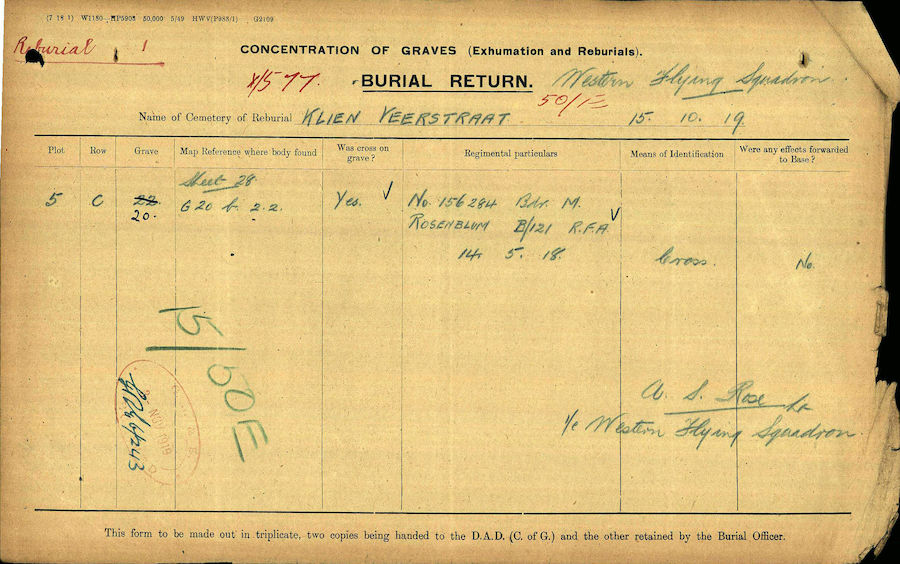 (7 18 1) W1180—HP5905 50,000 5/49 HWV(P988/1) G2109
Reburial 1
CONCENTRATION OF GRAVES (Exhumation and Reburials).
X/577 BURIAL RETURN. Western Flying Squadron
50/E
Name of Cemetery of Reburial KLIEN VEERSTRAAT 15. 10. 19.
Plot Row Grave Map Reference where body found Was cross on grave? Regimental particulars Means of Identification Were any effects forwarded to Base?
Sheet 28
5 C 22 G 20 b. 2.2. Yes. No. 156284 Bdr. M.
20. ROSENBLUM B/121 R.F.A.
14 5. 18. Cross. No.
15/50E
NOV 1919
A. S. Rose Lt
I/c Western Flying Squadron.
This form to be made out in triplicate, two copies being handed to the D.A.D. (C. of G.) and the other retained by the Burial Officer.